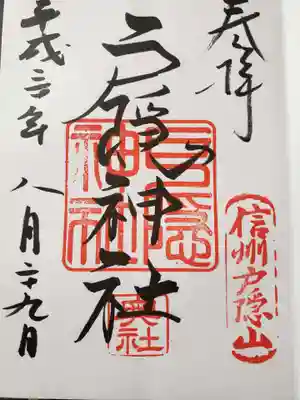 奉拝
信州戸隠山
戸隠神社
戸隠神社
奥社
平成三十年 八月二十九日